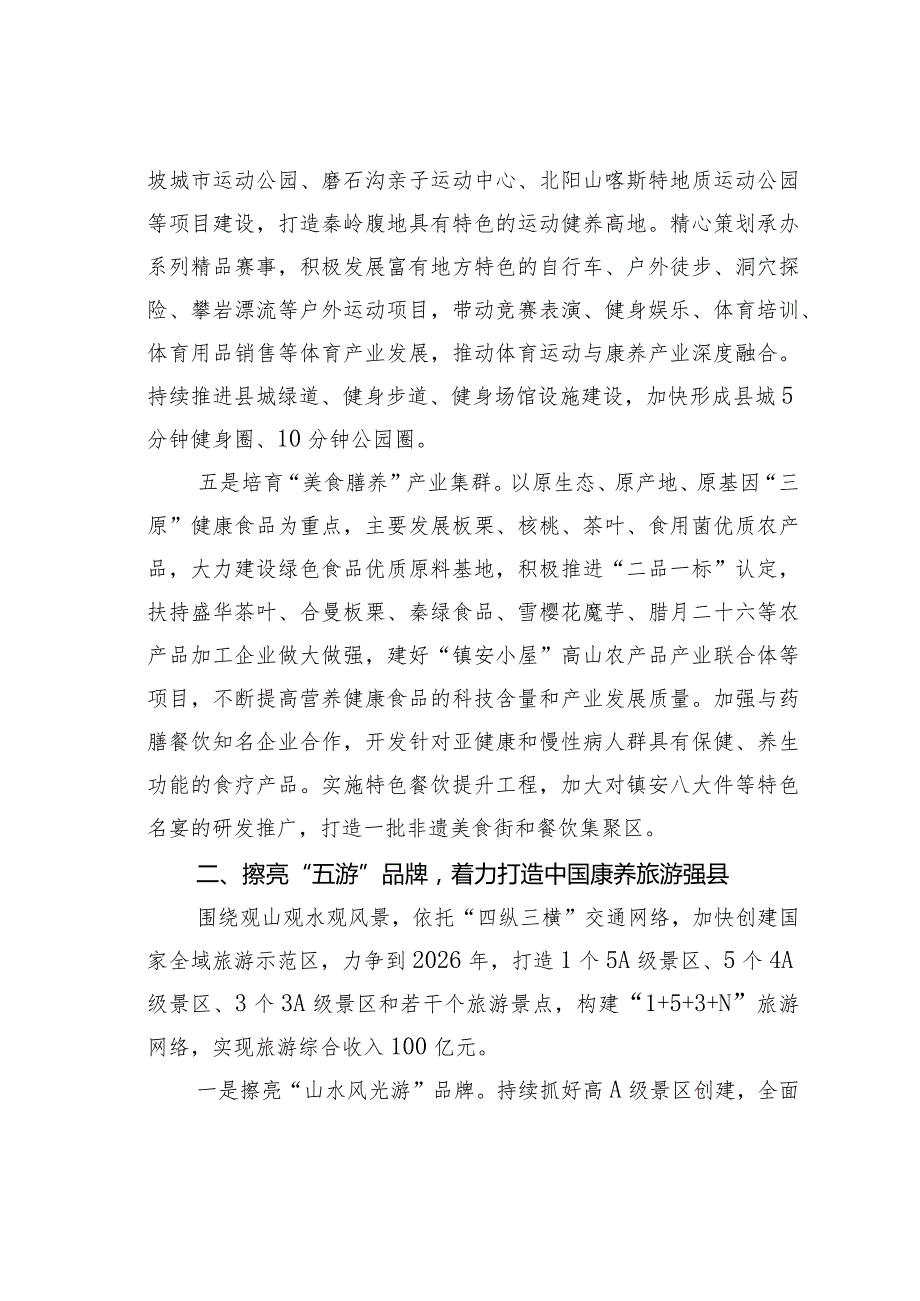 坡城市运动公园、磨石沟亲子运动中心、北阳山喀斯特地质运动公园
等项目建设，打造秦岭腹地具有特色的运动健养高地。精心策划承办
系列精品赛事，积极发展富有地方特色的自行车、户外徒步、洞穴探
险、攀岩漂流等户外运动项目，带动竞赛表演、健身娱乐、体育培训、
体育用品销售等体育产业发展，推动体育运动与康养产业深度融合。
持续推进县城绿道、健身步道、健身场馆设施建设，加快形成县城5
分钟健身圈、10分钟公园圈。
五是培育“美食膳养”产业集群。以原生态、原产地、原基因“三
原”健康食品为重点，主要发展板栗、核桃、茶叶、食用菌优质农产
品，大力建设绿色食品优质原料基地，积极推进“二品一标”认定，
扶持盛华茶叶、合曼板栗、秦绿食品、雪樱花魔芋、腊月二十六等农
产品加工企业做大做强，建好“镇安小屋”高山农产品产业联合体等
项目，不断提高营养健康食品的科技含量和产业发展质量。加强与药
膳餐饮知名企业合作，开发针对亚健康和慢性病人群具有保健、养生
功能的食疗产品。实施特色餐饮提升工程，加大对镇安八大件等特色
名宴的研发推广，打造一批非遗美食街和餐饮集聚区。
二、擦亮“五游”品牌，着力打造中国康养旅游强县
围绕观山观水观风景，依托“四纵三横”交通网络，加快创建国
家全域旅游示范区，力争到2026年，打造1个5A级景区、5个4A
级景区、3个3A级景区和若干个旅游景点，构建“1+5+3+N”旅游
网络，实现旅游综合收入100亿元。
一是擦亮“山水风光游”品牌。持续抓好高A级景区创建，全面